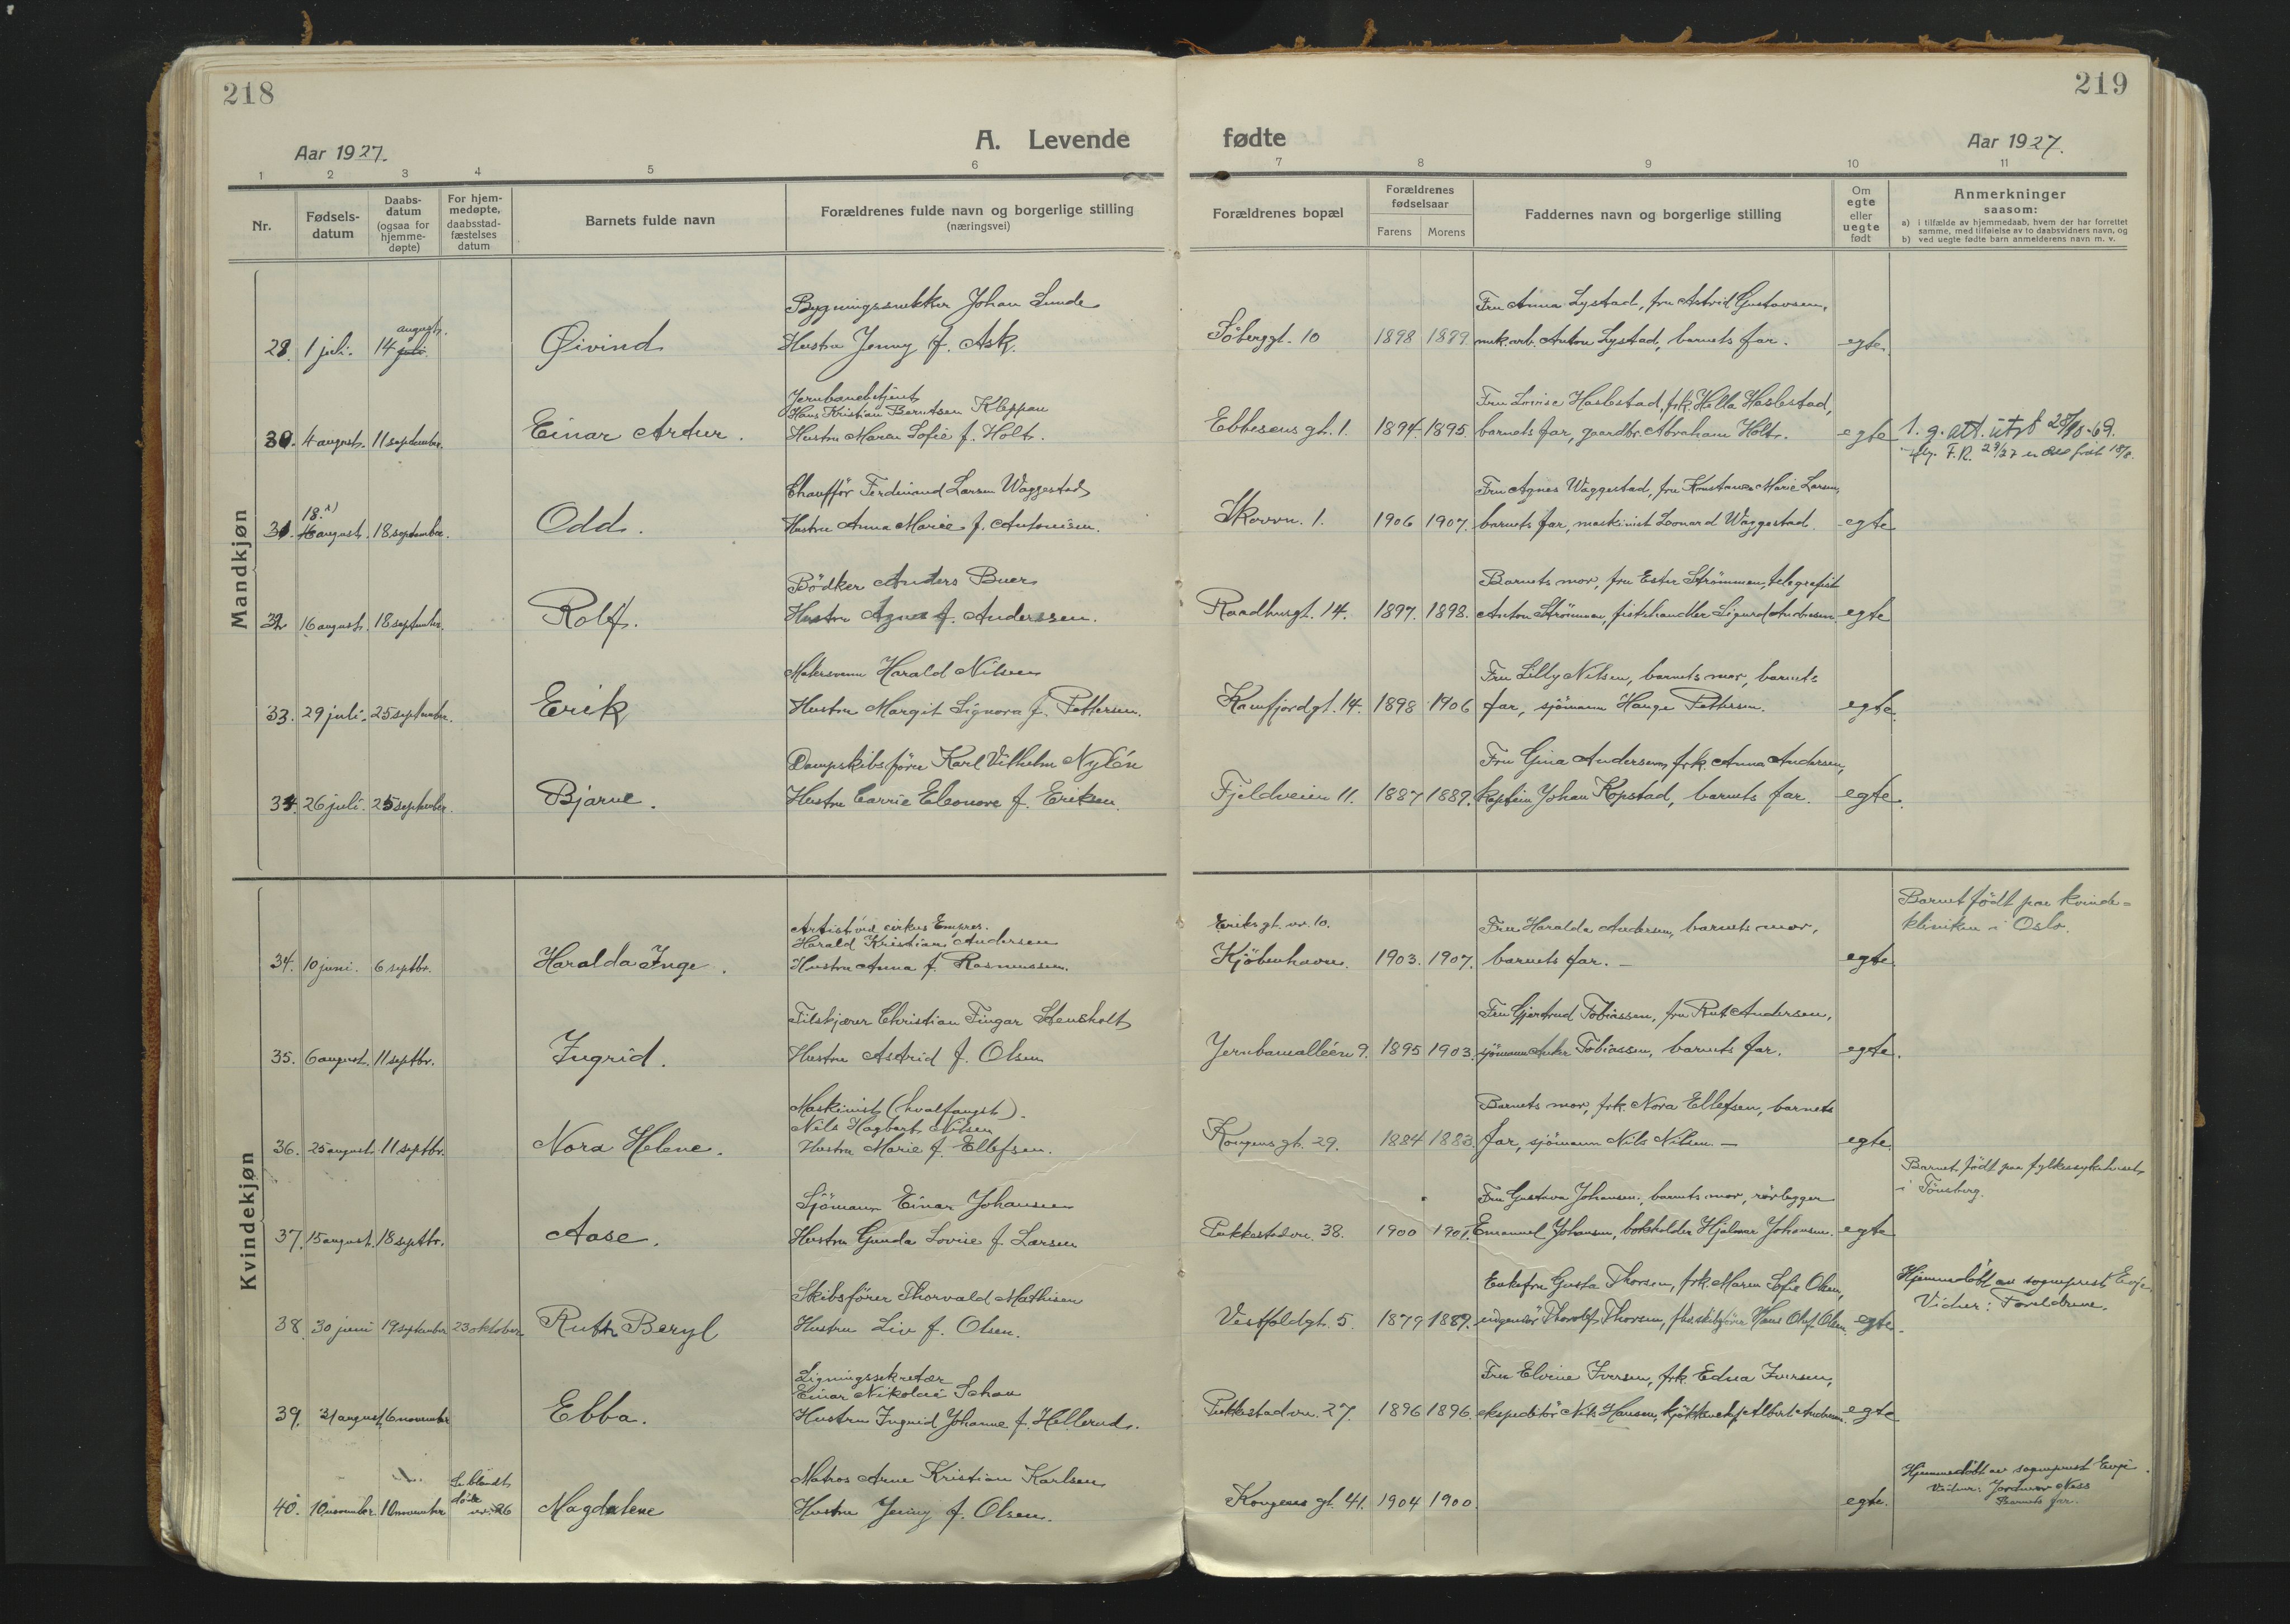 218
219
A. Levende fødte
Aar 1927.
Aar 1927.
1 2 3 4 5 6 7 8 9 10 11
Nr.
Fødsels-
datum
Daabs-
datum
(ogsaa for
hjemme-
døpte)
For hjem-
medøpte,
daabsstad-
fæstelses
datum
Barnets fulde navn
Forældrenes fulde navn og borgerlige stilling
(næringsvei)
Forældrenes bopæl
Forældrenes
fødselsaar
Farens Morens
Faddernes navn og borgerlige stilling
Om
egte
eller
uegte
født
Anmerkninger
saasom:
a) i tilfælde av hjemmedaab, hvem der har forrettet
samme, med tilføielse av to daabsvidners navn, og
b) ved uegte fødte barn anmelderens navn m. v.
Mandkjøn
Bygningssnekker Johan Lunde Fru Anna Lystad, fru Astrid Gustavsen,
august
28. 1 juli. 14 juli. Øivind Hustru Jenny f. Ask. Föberggt. 10 1898 1899 mek.arb. Anton Lystad, barnets far. egte.
Jernbanebetjent
Hans Kristian Berntsen Kleppan Fru Lovise Haslestad, frk. Hella Haslestad,
30. 4 august. 11 september. Einar Artur. Hustru Maren Sofie f. Holt. Ebbesens gt. 1. 1894. 1895. barnets far, gaardbr. Abraham Holt. egte 1. g. att. utst 28/10-69.
F. R. 29/27 er Odd født 18/8.
Chauffför Ferdinand Larsen Waggestad Fru Agnes Waggestad, fru Konstanse Marie Larsen,
18.
31. 16 august. 18 september. Odd. Hustru Anna Marie f. Antonisen. Skovvn. 1. 1906 1907. barnets far, maskinist Leonard Waggestad. egte
Bödker Anders Buer Barnets mor, fru Ester Strömmen, telegrafist
32 16 august. 18 septmber. Rolf. Hustru Agnes f. Anderssen. Raadhusgt. 14. 1897. 1898. Anton Strömmen, fiskehandler Sigurd Andersen. egte
Malersvenn Harald Nilsen Fru Lilly Nilsen, barnets mor, barnets
33. 29 juli. 25 september. Erik Hustru Margit Signora f. Pettersen. Kamfjordgt. 14. 1898 1906 far, sjömann Hauge Pettersen. egte.
Dampskibsförer Karl Vilhelm Nylén Fru Gina Andersen, frk. Anna Andersen,
34. 26 juli. 25 september. Bjarne. Hustru Carrie Eleonore f. Eriksen. Fjeldveien 11. 1887 1889. kaptein Johan Kopstad, barnets far. egte.
Kvindekjøn
Barnet födt paa kvinde=
Artist ved cirkus Empres. Eriksgt. nr. 10. klinikken i Oslo.
Harald Kristian Andersen Fru Haralda Andersen, barnets mor,
34. 10 juni. 6 septbr. Haralda Inge. Hustru Anna f. Rasmussen. Kjöbenhavn. 1903. 1907. barnets far. — egte.
Filskjærer Christian Fingar Stensholt Fru Gjertrud Tobiassen, fru Rut Andersen,
35. 6 august. 11 septbr. Ingrid. Hustru Astrid f. Olsen Jernbanealléen 9. 1895 1903. sjömann Anker Tobiassen, barnets far. egte.
Maskinist (hvalfangst). Barnets mor, frk. Nora Ellefsen, barnets
Nils Hagbart Nilsen
36. 25 august. 11 septbr. Nora Helene. Hustru Marie f. Ellefsen. Kongens gt. 29. 1884 1883. far, sjömann Nils Nilsen — egte.
Barnet födt paa fylkessykehuset
i Tönsberg.
Sjömann Einar Johansen Fru Gustava Johansen, barnets mor, rörlegger
37. 15 august. 18 septbr. Aase. Hustru Gunda Lovise f. Larsen Pukkestadvn. 38. 1900 1901. Emanuel Johansen, bokholder Hjalmar Johansen. egte
Skibsförer Thorvald Mathisen Enkefru Gusta Thorsen, frk. Maren Sofie Olsen, Hjemmedöbt av sogneprest Evje.
Vidner: Foreldrene.
38. 30 juni 19 september 23 oktober Ruth Beryl Hustru Liv f. Olsen. Vestfoldgt. 5. 1879 1889. ingeniör Thorolf Thorsen, fhv. skibsförer Hans Oluf Olsen. egte.
Ligningssekretær Fru Elvine Iversen, frk. Edna Iversen,
Einar Nikolai Schau
39. 31 august. 6 november Ebba. Hustru Ingrid Johanne f. Hellerud. Pukkestadvn. 27. 1896 1896. ekspeditör Nils Hansen, kjökkenchef Albert Andersen. egte
Se blandt Matros Arne Kristian Karlsen Hjemmedöbt av sogneprest Evje.
döde Vidner: Jordmor Næss
40. 10 november. 10 november nr. 26 Magdalene Hustru Jenny f. Olsen. Kongens gt. 41. 1904 1900. egte. Barnets far.